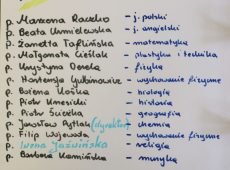 p. Marzena Raczko - j. polski
p. Beata Chmielewska - j. angielski
p. Żanetta Taflińska - matematyka
p. Małgorzata Cieślak - plastyka i technika
p. Krystyna - fizyka
p. Hortensja - wychowanie fizyczne
p. Bożena - biologia
p. Piotr - historia
p. Piotr Ścieżka - geografia
p. Jarosław (dyrektor) - chemia
p. Filip Wojewoda - wychowanie fizyczne
p. Iwona Jaźwińska - religia
p. Barbara Kamińska - muzyka